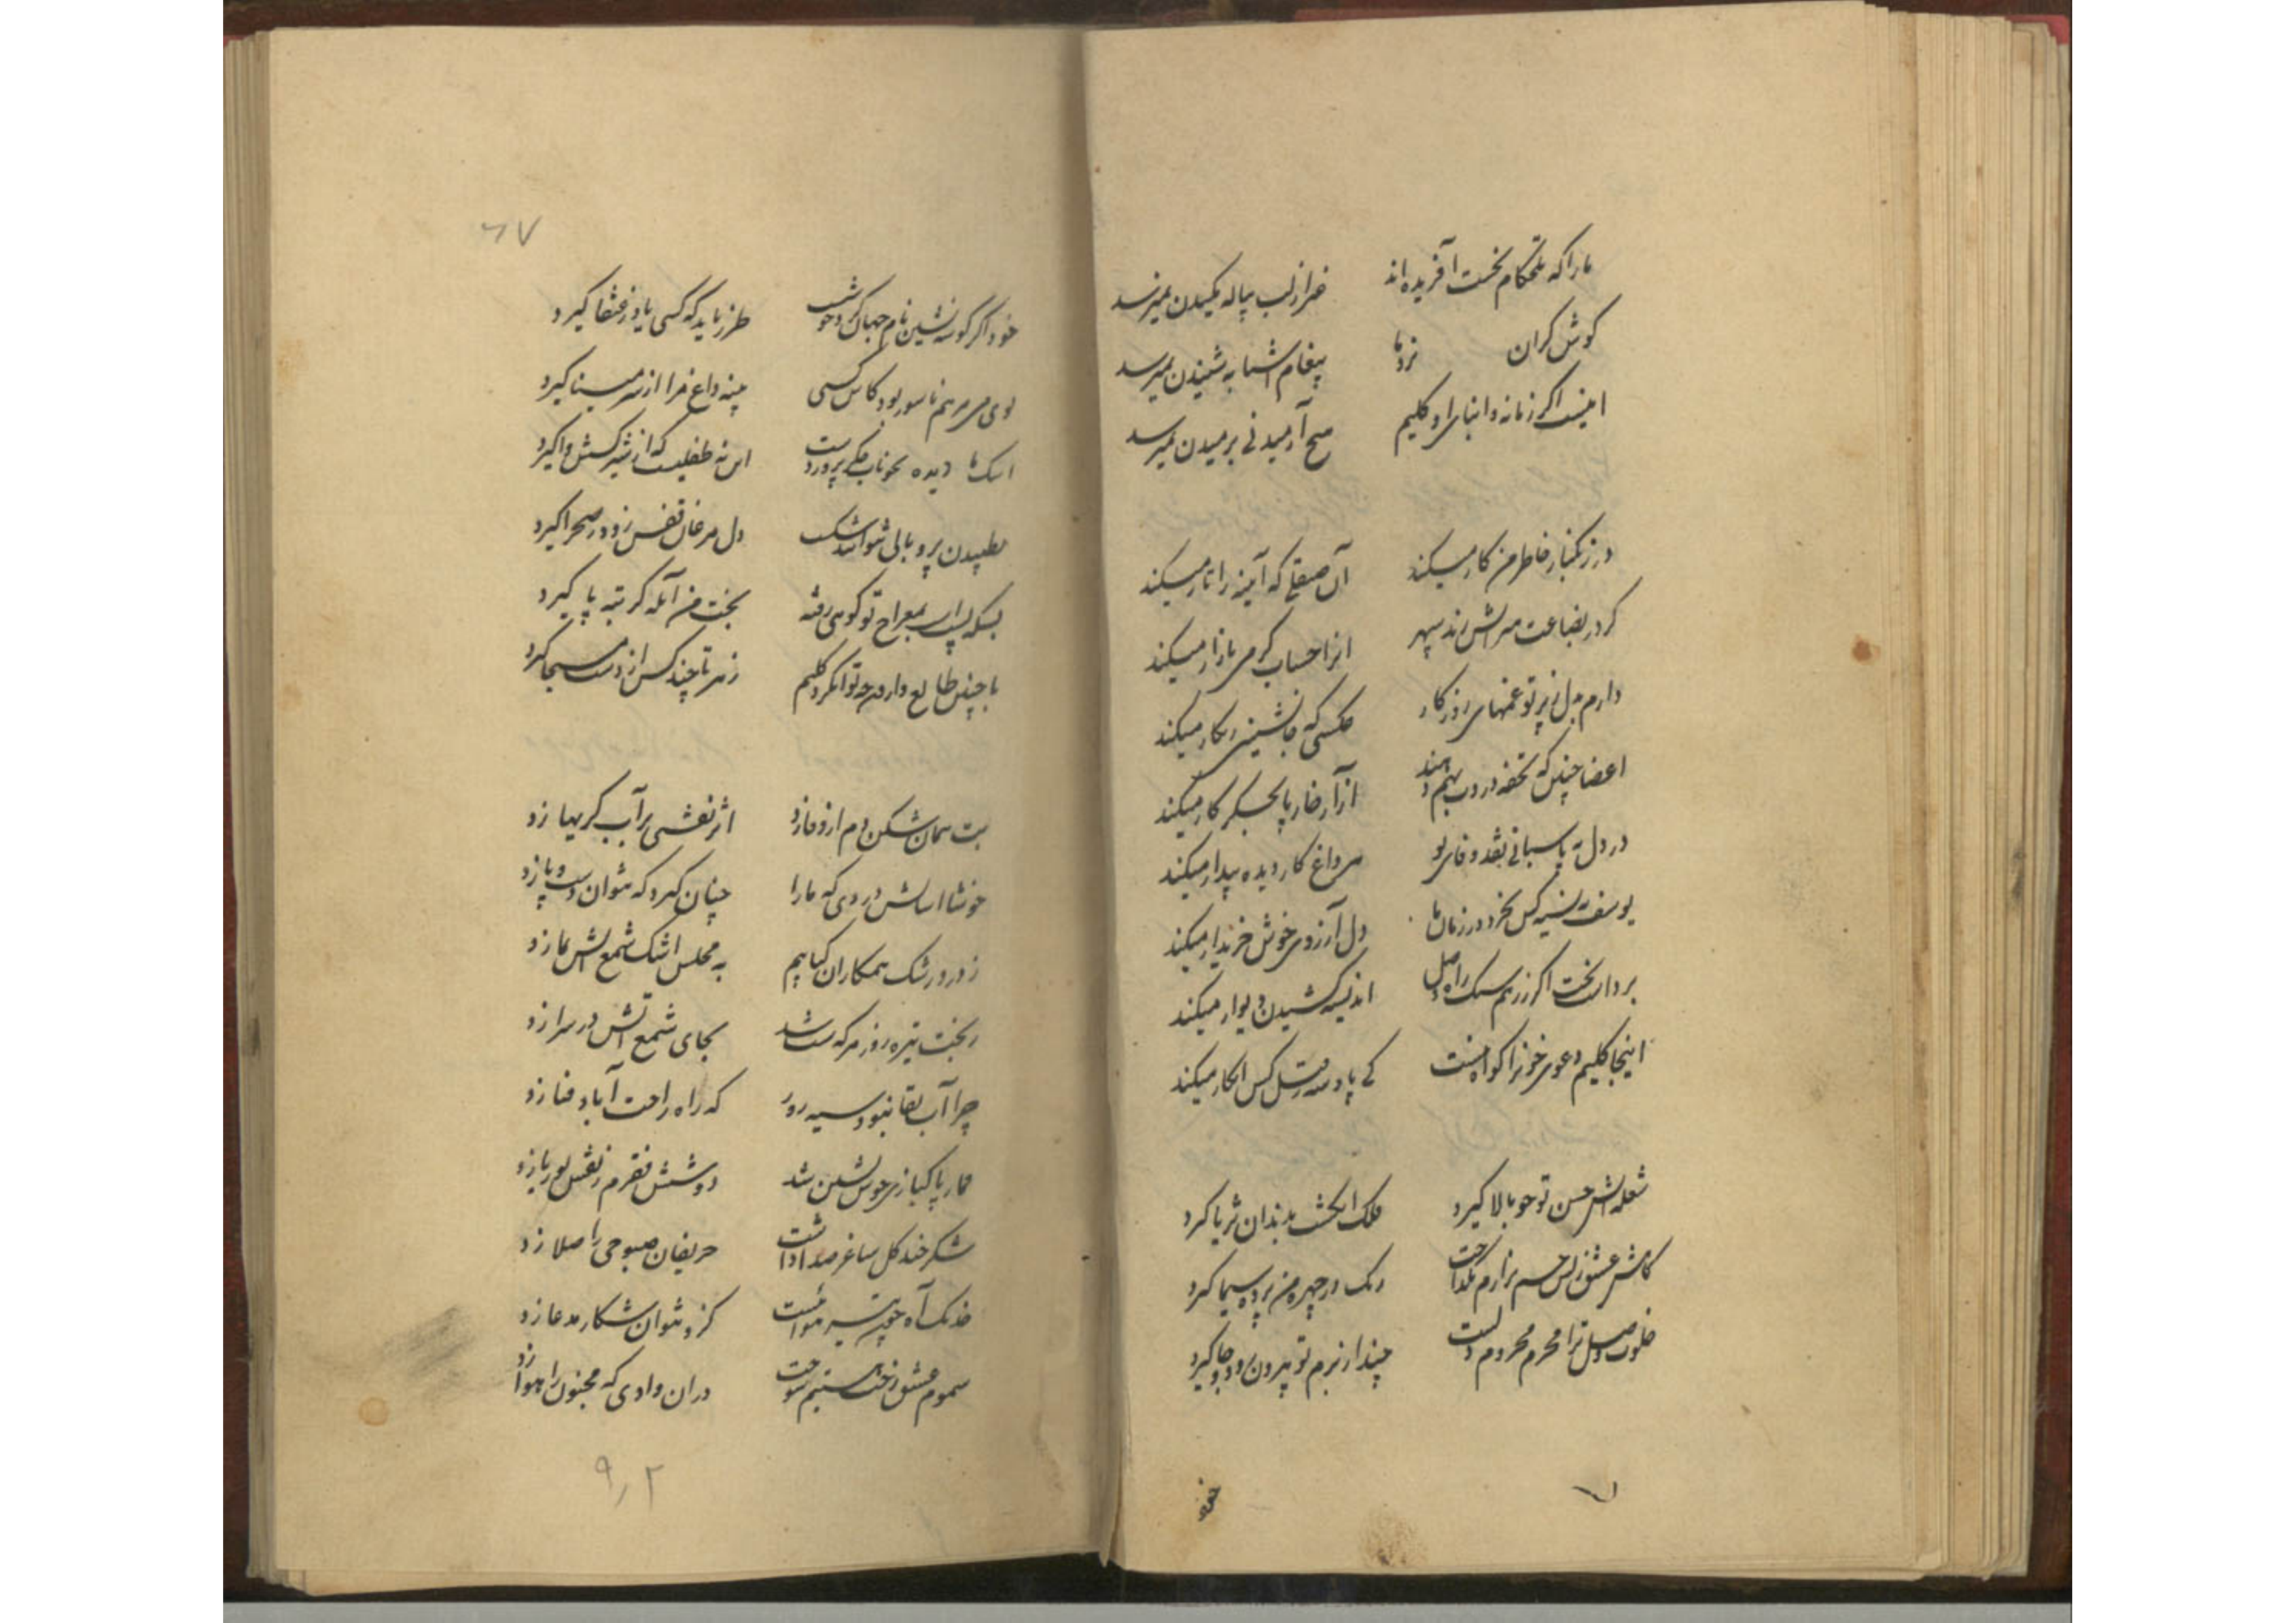 ما را که تلخکام نخست آفریده‌اند خبر از لب پیاله بمکیدن نمیرسد
کوش کران نزد ما پیغام آشنا به شنیدن نمیرسد
اینست اگر زمانه و ابنای او کلیم صبح آرمیدنی برمیدن نمیرسد
در زنکبار خاطر من کار میکند آن صیقلی که آینه را تار میکند
کر در بضاعت من آتش زند سپهر آنرا حساب کرمی بازار میکند
دارم بدل ز پرتو غمهای روزکار عکسی که جانشینی زنکار میکند
اعضا چنین که تحفه درد بهم دهند آزار خار پا بجکر کار میکند
در دل به پاسبانی نقد وفای تو هر داغ کار دیده بیدار میکند
یوسف به نسیه کس نخرد در زمان ما دل آرزوی خوش خریدار میکند
برداشت بخت اگر ز رهم سنک راه وصل اندیشه کشیدن دیوار میکند
اینجا کلیم دعوی خونرا کواه نیست کی پادشه ز قتل کس انکار میکند
شعله آتش حسن تو چو بالا کیرد فلک انکشت بدندان ثریا کیرد
کاهش عشق ز بس جسم نزارم بگداخت رنک در چهره من پرده سیما کیرد
خلوت وصل ترا محرم و محروم یکیست چند از بزم تو بیرون رود و جا کیرد
خود
۶۷
خود اگر گوشه نشین نام جهان گرد خوشست طرز باید که کسی یاد ز عنقا کیرد
بوی می مرهم ناسور بود کاش کسی پنبه داغ مرا از سر مینا کیرد
اشک ما دیده بخوناب جکر پروردست این نه طفلیست که از شیر کسش واکیرد
بطپیدن پر و بالی نتوانند شکست دل مرغان قفس زود ز صحرا کیرد
بسکه پستی بمعراج تو کوئی رفته بخت من آبله کر رتبه پا کیرد
با چنین طالع وارونه چه تواند کرد کلیم زهر تا چند کس از دست مسیحا کیرد
بت پیمان شکن دم از وفا زد اثر نقشی بر آب کریها زد
خوشا آسایش دردی که ما را چنان کیرد که نتوان دست و پا زد
ز درد رشک همکاران کبابیم به مجلس اشک شمع آتش بما زد
ز بخت تیره روزم هرکه شب شد بجای شمع آتش در سرا زد
چرا آب بقا نبود سیه روز که راه راحت آباد فنا زد
قمار پاکبازی خوش نشین شد دو شش فقرم ز نقش بوریا زد
شکر خند کل ساغر صدا داشت حریفان صبوحی را صلا زد
خدنک آه چوبین تیر هوائیست کزو نتوان شکار مدعا زد
سموم عشق رخت هستیم سوخت در آن وادی که مجنون را هوا زد
۹٫۲